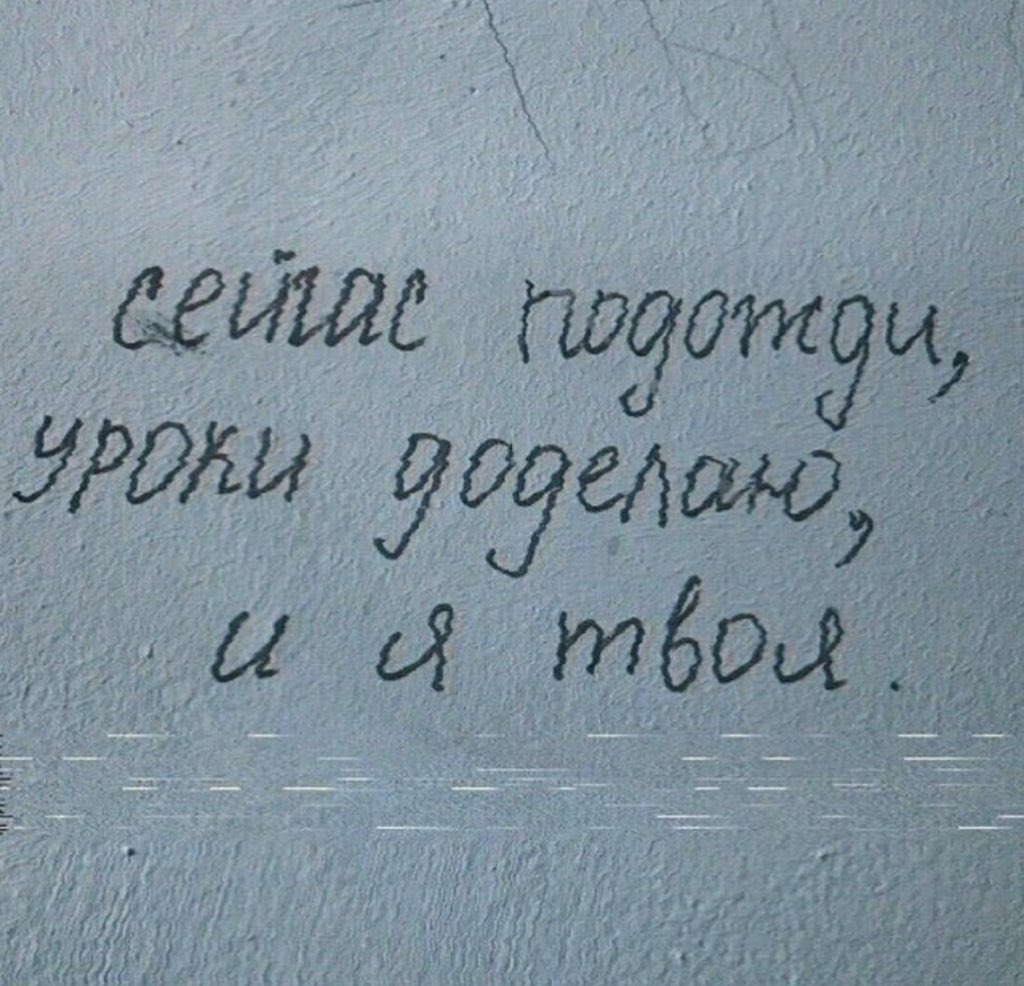 сейчас подожди,
уроки доделаю,
и я твоя.